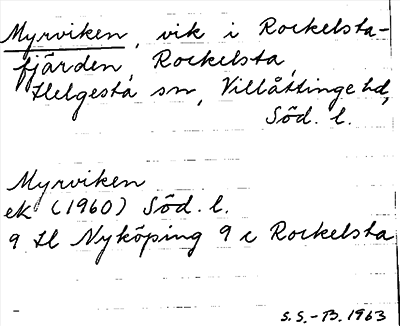 Myrviken, vik i Rockelsta-
fjärden, Rockelsta,
Helgesta sn, Villåttinge hd,
Söd. l.
Myrviken
ek (1960) Söd. l.
9 H Nyköping 9 c Rockelsta
S.S.-B. 1963